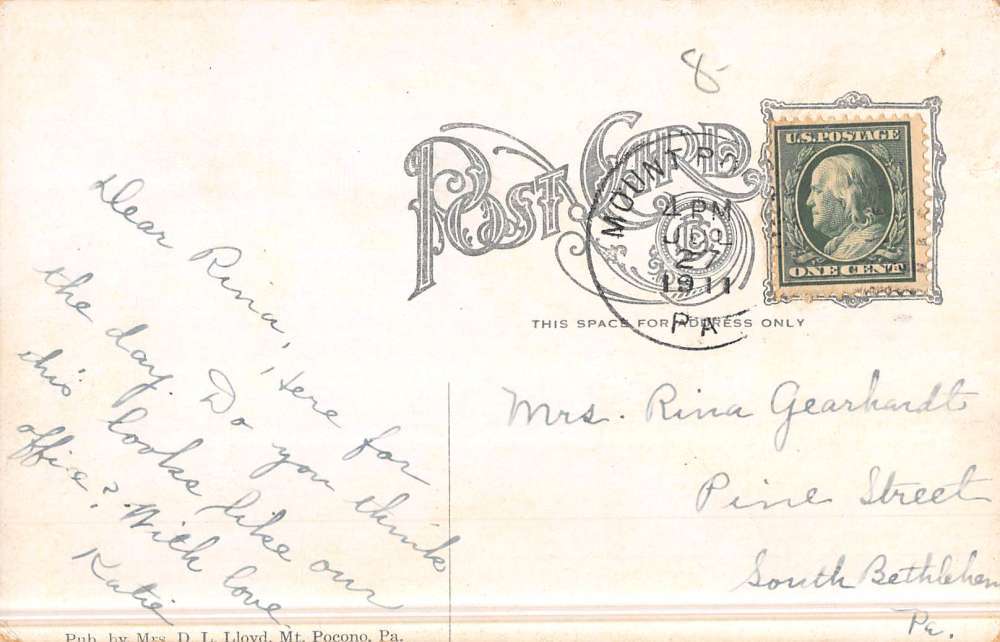 8-
POST CARD
U.S. POSTAGE
ONE CENT
MOUNT PO
PM
27
1911
PA
THIS SPACE FOR ADDRESS ONLY
Dear Rina, Here for
the day. Do you think
this looks like our
office? With love
Katie
Mrs. Rina Gearhardt
Pine Street
South Bethlehem
Pa.
Pub. by Mrs. D. L. Lloyd, Mt. Pocono, Pa.